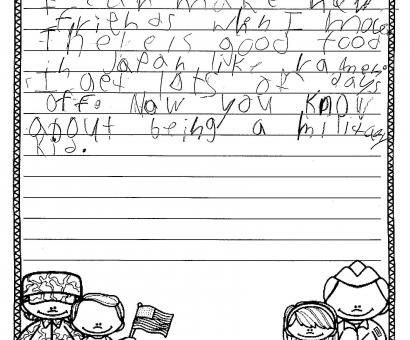 I can make new
friends when I move
There is good food
in Japan like ramen.
I get lots of days
off. Now you know
about being a military
kid.